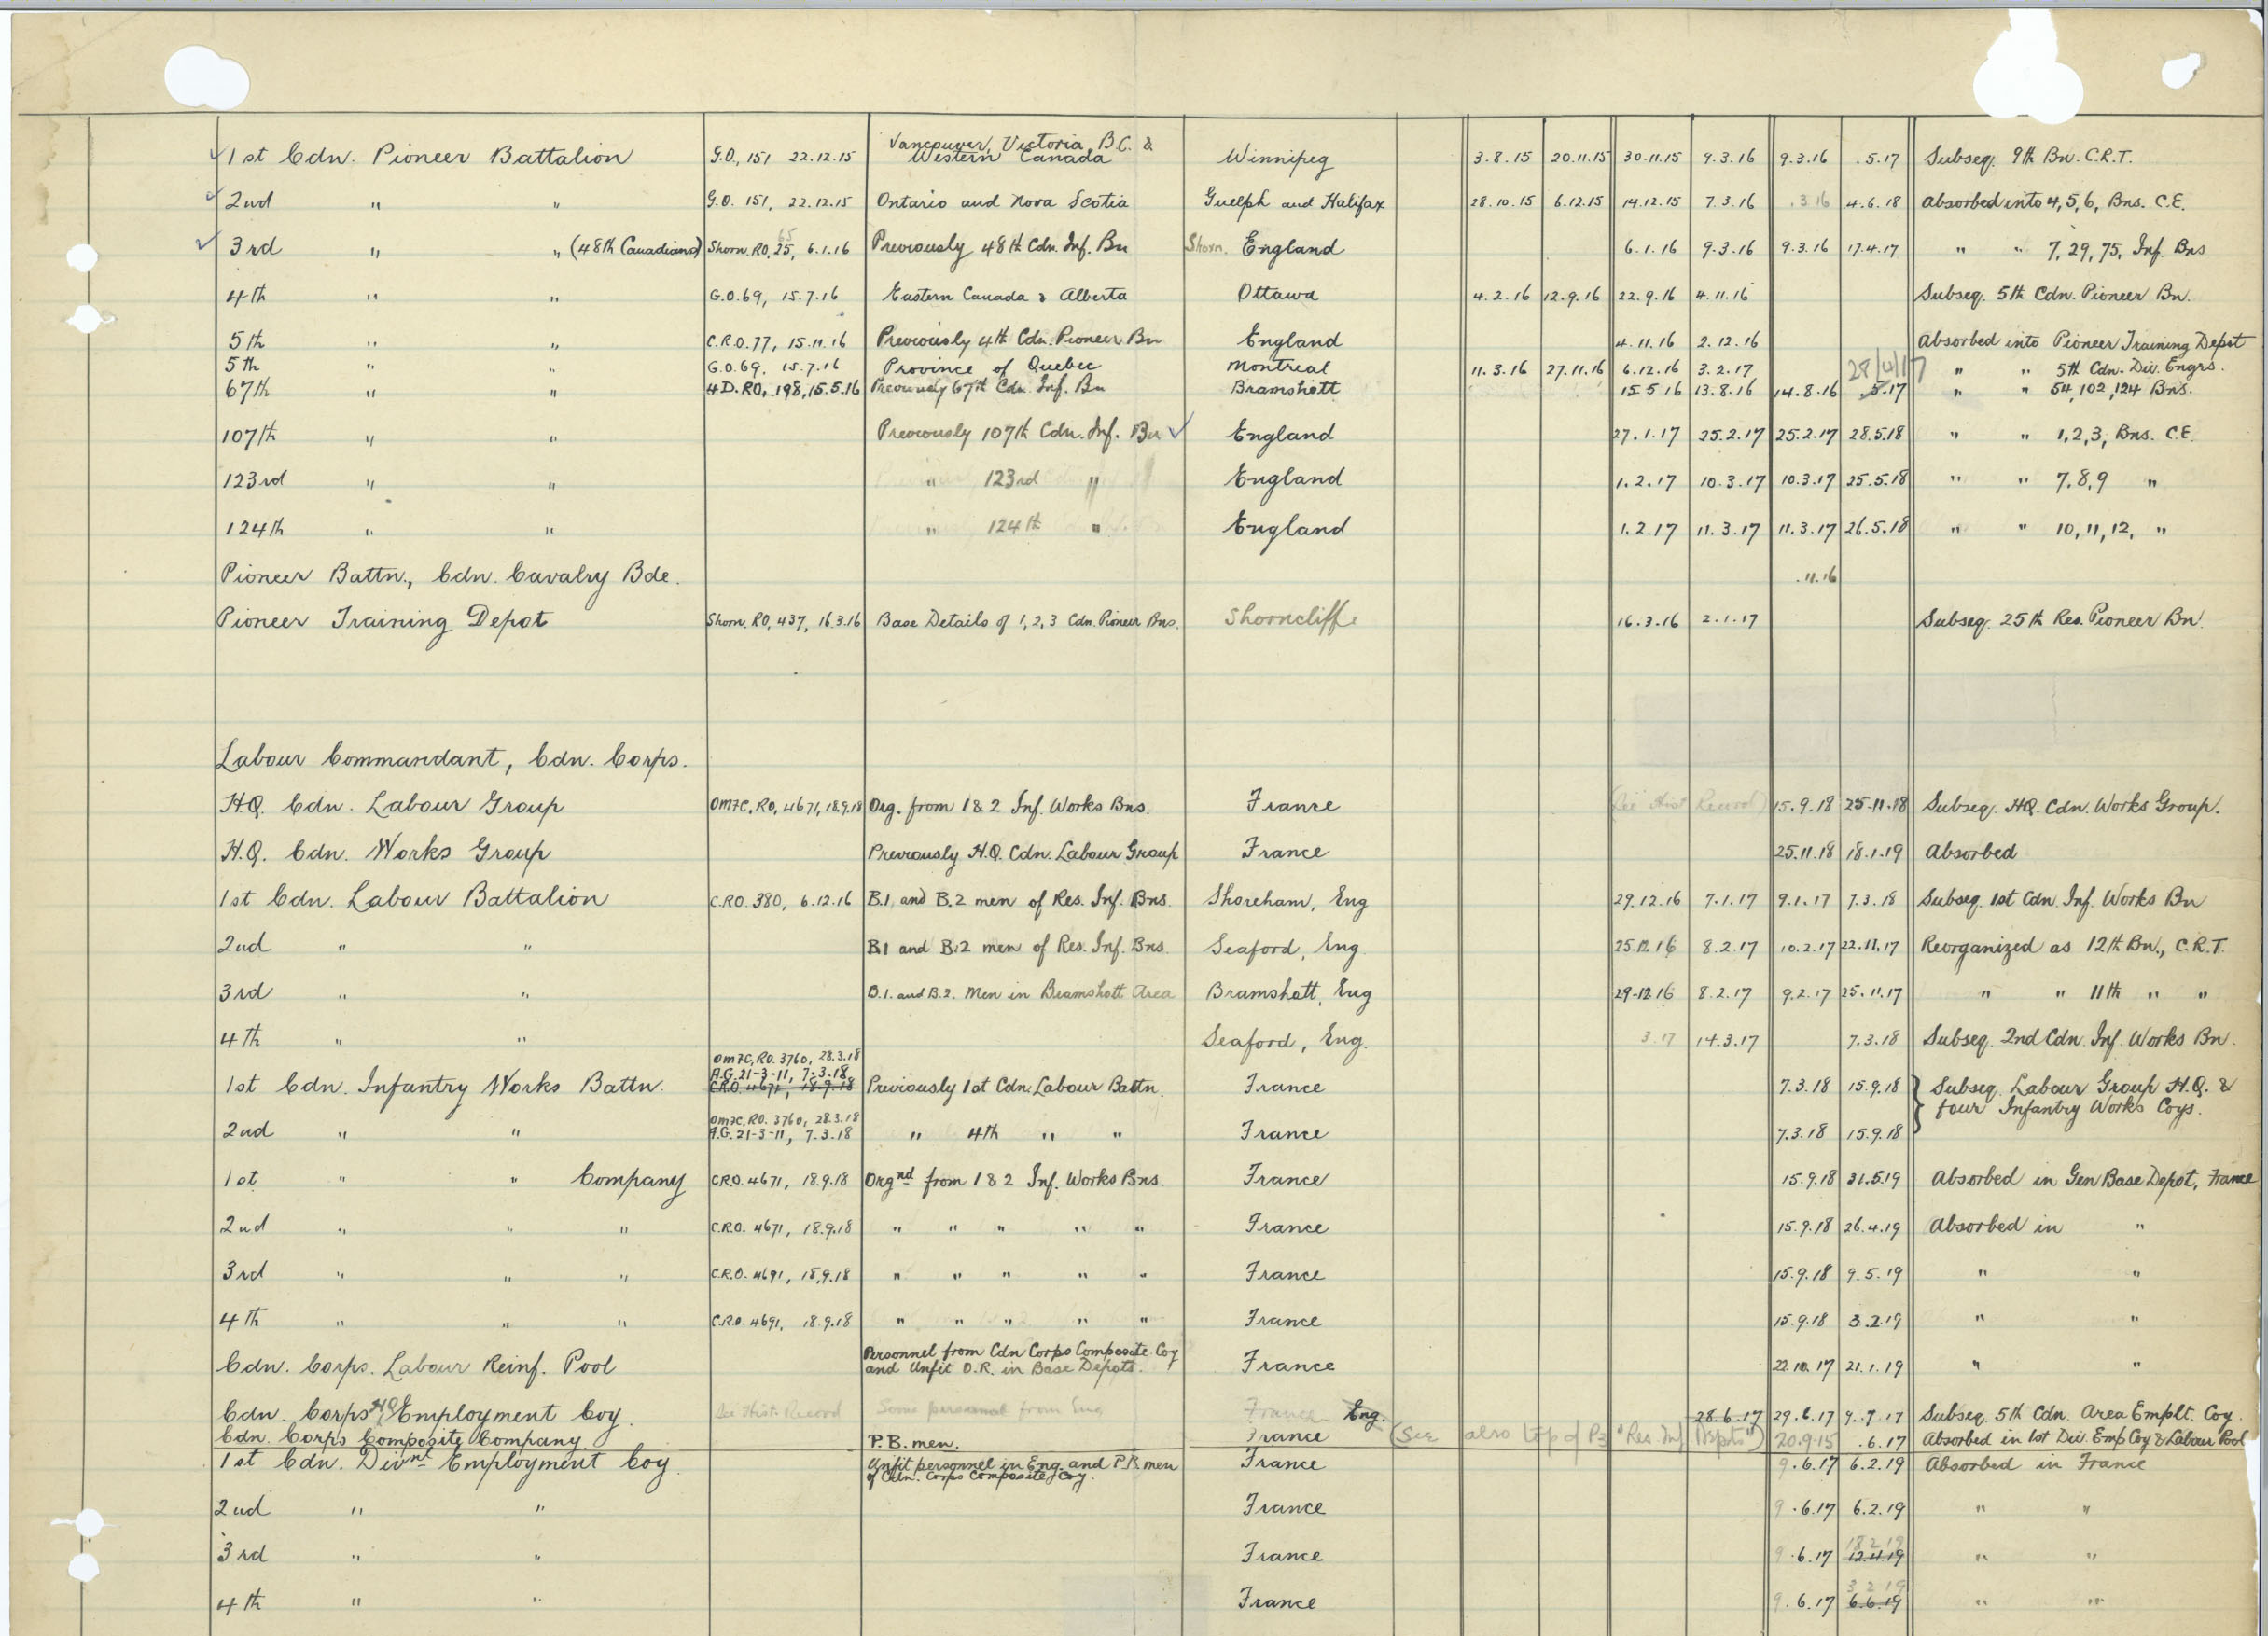 1st Cdn. Pioneer Battalion G.O., 151 22.12.15 Vancouver, Victoria, B.C. & Western Canada Winnipeg 3.8.15 20.11.15 30.11.15 9.3.16 9.3.16 .5.17 Subseq. 9th Bn. C.R.T.
2nd " " G.O. 151, 22.12.15 Ontario and Nova Scotia Guelph and Halifax 28.10.15 6.12.15 14.12.15 7.3.16 .3 16 4.6.18 Absorbed into 4,5,6, Bns. C.E.
3rd " " (48th Canadians) Shorn. RO, 25, 65 6.1.16 Previously 48th Cdn. Inf. Bn Shorn. England 6.1.16 9.3.16 9.3.16 17.4.17 " " 7, 29, 75, Inf. Bns
4th " " G.O.69, 15.7.16 Eastern Canada & Alberta Ottawa 4.2.16 12.9.16 22.9.16 4.11.16 Subseq. 5th Cdn. Pioneer Bn.
5th " " C.R.O.77, 15.11.16 Previously 4th Cdn. Pioneer Bn England 4.11.16 2.12.16 Absorbed into Pioneer Training Depot
5th " " G.O.69, 15.7.16 Province of Quebec Montreal 11.3.16 27.11.16 6.12.16 3.2.17 " " 5th Cdn. Div. Engrs.
67th " " 4.D.RO, 198, 15.5.16 Previously 67th Cdn. Inf. Bn Bramshott 15 5 16 13.8.16 14.8.16 .5.17 28/4/17 " " 54, 102, 124 Bns.
107th " " Previously 107th Cdn. Inf. Bn England 27.1.17 25.2.17 25.2.17 28.5.18 " " 1,2,3, Bns. C.E.
123rd " " " 123rd " England 1.2.17 10.3.17 10.3.17 25.5.18 " " 7,8,9 "
124th " " " 124th " England 1.2.17 11.3.17 11.3.17 26.5.18 " " 10,11,12, "
Pioneer Battn., Cdn. Cavalry Bde. .11.16
Pioneer Training Depot Shorn. RO, 437, 16.3.16 Base Details of 1,2,3 Cdn. Pioneer Bns. Shorncliffe 16.3.16 2.1.17 Subseq. 25th Res. Pioneer Bn.
Labour Commandant, Cdn. Corps.
H.Q. Cdn. Labour Group OMFC, RO, 4671, 18.9.18 Org. from 1 & 2 Inf. Works Bns. France (See Hist Record) 15.9.18 25.11.18 Subseq. HQ. Cdn. Works Group.
H.Q. Cdn. Works Group Previously H.Q. Cdn. Labour Group France 25.11.18 18.1.19 Absorbed
1st Cdn. Labour Battalion C.R.O. 380, 6.12.16 B.1 and B.2 men of Res. Inf. Bns. Shoreham, Eng 29.12.16 7.1.17 9.1.17 7.3.18 Subseq. 1st Cdn. Inf. Works Bn
2nd " " B.1 and B.2 men of Res. Inf. Bns. Seaford, Eng 25.12.16 8.2.17 10.2.17 22.11.17 Reorganized as 12th Bn., C.R.T.
3rd " " B.1. and B.2. Men in Bramshott Area Bramshott, Eng 29-12.16 8.2.17 9.2.17 25.11.17 " " 11th " "
4th " " Seaford, Eng. 3.17 14.3.17 7.3.18 Subseq. 2nd Cdn. Inf. Works Bn.
OMFC, RO. 3760, 28.3.18
A.G. 21-3-11, 7-3.18
1st Cdn. Infantry Works Battn. C.R.O. 4671, 18.9.18 Previously 1st Cdn. Labour Battn. France 7.3.18 15.9.18 } Subseq. Labour Group H.Q. &
four Infantry Works Coys.
OMFC, RO. 3760, 28.3.18
2nd " " A.G. 21-3-11, 7.3.18 " 4th " " France 7.3.18 15.9.18
1st " " Company C.R.O. 4671, 18.9.18 Orgnd from 1 & 2 Inf. Works Bns. France 15.9.18 31.5.19 Absorbed in Gen Base Depot, France
2nd " " " C.R.O. 4671, 18.9.18 " " " " " France 15.9.18 26.4.19 Absorbed in "
3rd " " " C.R.O. 4691, 18.9.18 " " " " " France 15.9.18 9.5.19 " "
4th " " " C.R.O. 4691, 18.9.18 " " " " " France 15.9.18 3.2.19 " "
Cdn. Corps. Labour Reinf. Pool Personnel from Cdn Corps Composite Coy and Unfit O.R. in Base Depots. France 22.10.17 21.1.19 " "
Cdn. Corps HQ Employment Coy. See Hist. Record Some personnel from Eng France Eng. 28.6.17 29.6.17 9.7.17 Subseq. 5th Cdn. Area Emplt. Coy.
Cdn. Corps Composite Company P.B. men. France (See also top of P3 "Res Inf Depots") 20.9.15 .6.17 Absorbed in 1st Div. Emp Coy & Labour Pool
1st Cdn. Divnl Employment Coy. Unfit personnel in Eng. and P.B. men of Cdn. Corps Composite Coy. France 9.6.17 6.2.19 Absorbed in France
2nd " " France 9.6.17 6.2.19 " "
3rd " " France 9.6.17 18 2 19 12.4.19 " "
4th " " France 9.6.17 3 2 19 6.6.19 " "